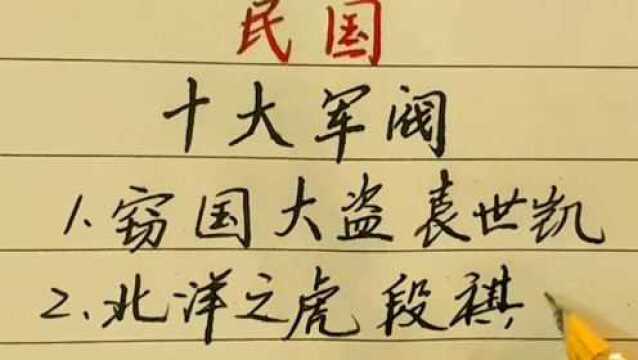 民国
十大军阀
1.窃国大盗袁世凯
2.北洋之虎段祺